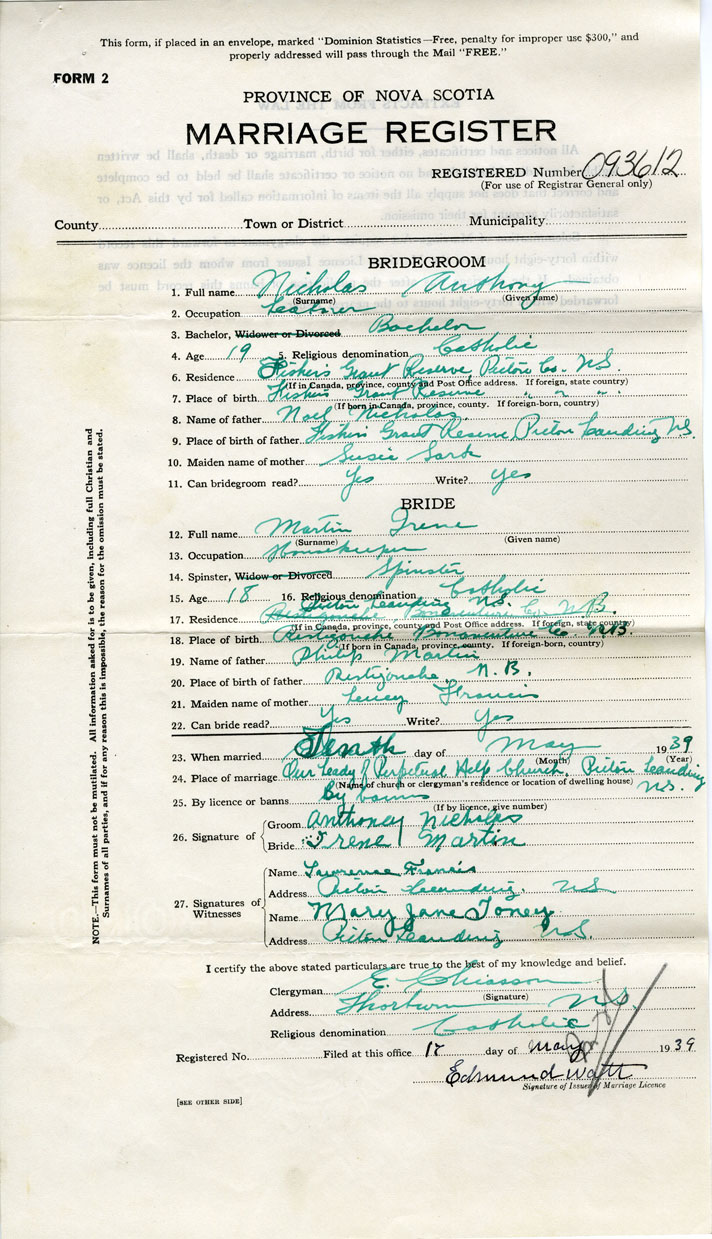 This form, if placed in an envelope, marked "Dominion Statistics—Free, penalty for improper use $300," and
properly addressed will pass through the Mail "FREE."
FORM 2
PROVINCE OF NOVA SCOTIA
MARRIAGE REGISTER
REGISTERED Number 093612
(For use of Registrar General only)
County Town or District Municipality
BRIDEGROOM
1. Full name Nicholas Anthony
(Surname) (Given name)
2. Occupation
3. Bachelor, Widower or Divorced Bachelor
4. Age 19 5. Religious denomination Catholic
6. Residence Fishers Grant Reserve Pictou Co. N.S.
(If in Canada, province, county and Post Office address. If foreign, state country)
7. Place of birth Fishers Grant Reserve " " "
(If born in Canada, province, county. If foreign-born, country)
8. Name of father Noel Nicholas
9. Place of birth of father Fishers Grant Reserve Pictou Landing N.S.
10. Maiden name of mother Susie Sark
11. Can bridegroom read? Yes Write? Yes
BRIDE
12. Full name Martin Irene
(Surname) (Given name)
13. Occupation Housekeeper
14. Spinster, Widow or Divorced Spinster
15. Age 18 16. Religious denomination Catholic
Pictou Landing N.S.
17. Residence Restigouche Bonaventure Co. N.B.
(If in Canada, province, county and Post Office address. If foreign, state country)
18. Place of birth Restigouche Bonaventure Co. N.B.
(If born in Canada, province, county. If foreign-born, country)
19. Name of father Philip Martin
20. Place of birth of father Restigouche N.B.
21. Maiden name of mother Lucy Francis
22. Can bride read? Yes Write? Yes
23. When married Tenth day of May 1939
(Month) (Year)
24. Place of marriage Our Lady of Perpetual Help Church, Pictou Landing
(Name of church or clergyman's residence or location of dwelling house) N.S.
25. By licence or banns By banns
(If by licence, give number)
26. Signature of
Groom Anthoney Nicholas
Bride Irene Martin
27. Signatures of Witnesses
Name Lawrence Francis
Address Pictou Landing, N.S.
Name Mary Jane Toney
Address Pictou Landing N.S.
I certify the above stated particulars are true to the best of my knowledge and belief.
Clergyman E. Chiasson
(Signature)
Address Thorburn N.S.
Religious denomination Catholic
Registered No. Filed at this office 17 day of May 1939
Edmund Watt
Signature of Issuer of Marriage Licence
[SEE OTHER SIDE]
NOTE.—This form must not be mutilated. All information asked for is to be given, including full Christian and
Surnames of all parties, and if for any reason this is impossible, the reason for the omission must be stated.